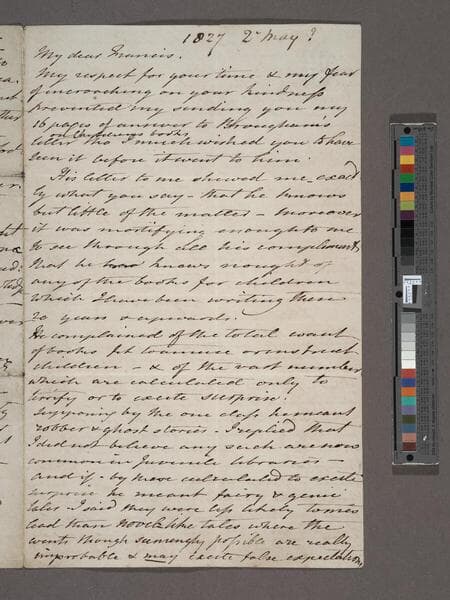 1827 2d May?
My dear Francis.
My respect for your time & my fear
of incroaching on your kindness
prevented my sending you my
16 pages of answer to Brougham's
on Childrens books
letter tho' I much wished you to have
seen it before it went to him.
His letter to me shewed me exact
ly what you say - that he knows
but little of the matter - moreover
it was mortifying enough to me
to see through all his compliments
that he knows nought of
any of the books for children
which I have been writing these
20 years & upwards.
He complained of the total want
of books fit to amuse or instruct
children - & of the vast number
which are calculated only to
terrify or to excite surprise.
Supposing by the one class he meant
robber & ghost stories - I replied that
I did not believe any such are now
common in Juvenile libraries -
and if - by those calculated to excite
surprise he meant fairy & genii
tales - I said they were less likely to mis
lead than novel like tales where the
events though seemingly possible are really
improbable & may excite false expectation,